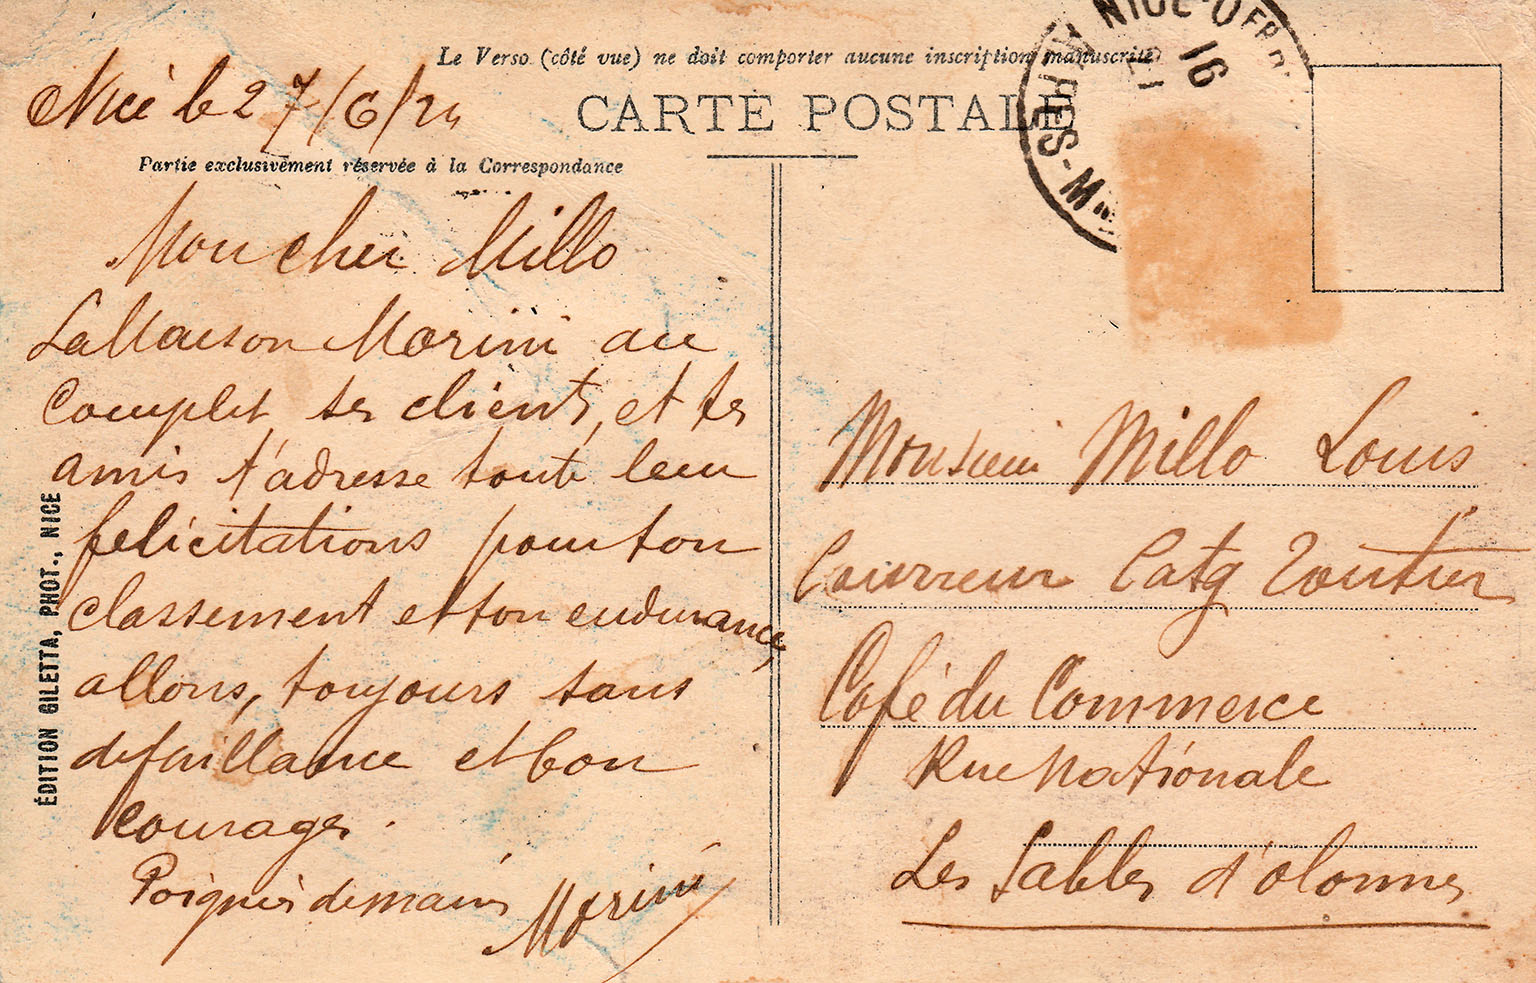 Le Verso (côté vue) ne doit comporter aucune inscription manuscrite
Nice le 27/6/24
CARTE POSTALE
Partie exclusivement réservée à la Correspondance
Mon cher Millo
La Maison Morini au
complet ses clients, et ses
amis t'adresse toute leur
felicitations pour ton
classement et ton endurance,
allons, toujours sans
defaillance et bon
courage.
Poignés de mains Morini
ÉDITION GILETTA, PHOT., NICE
NICE
16
ES-Mmes
Monsieur Millo Louis
Coureur Catg Routier
Café du Commerce
Rue Nationale
Les Sables d'olonnes